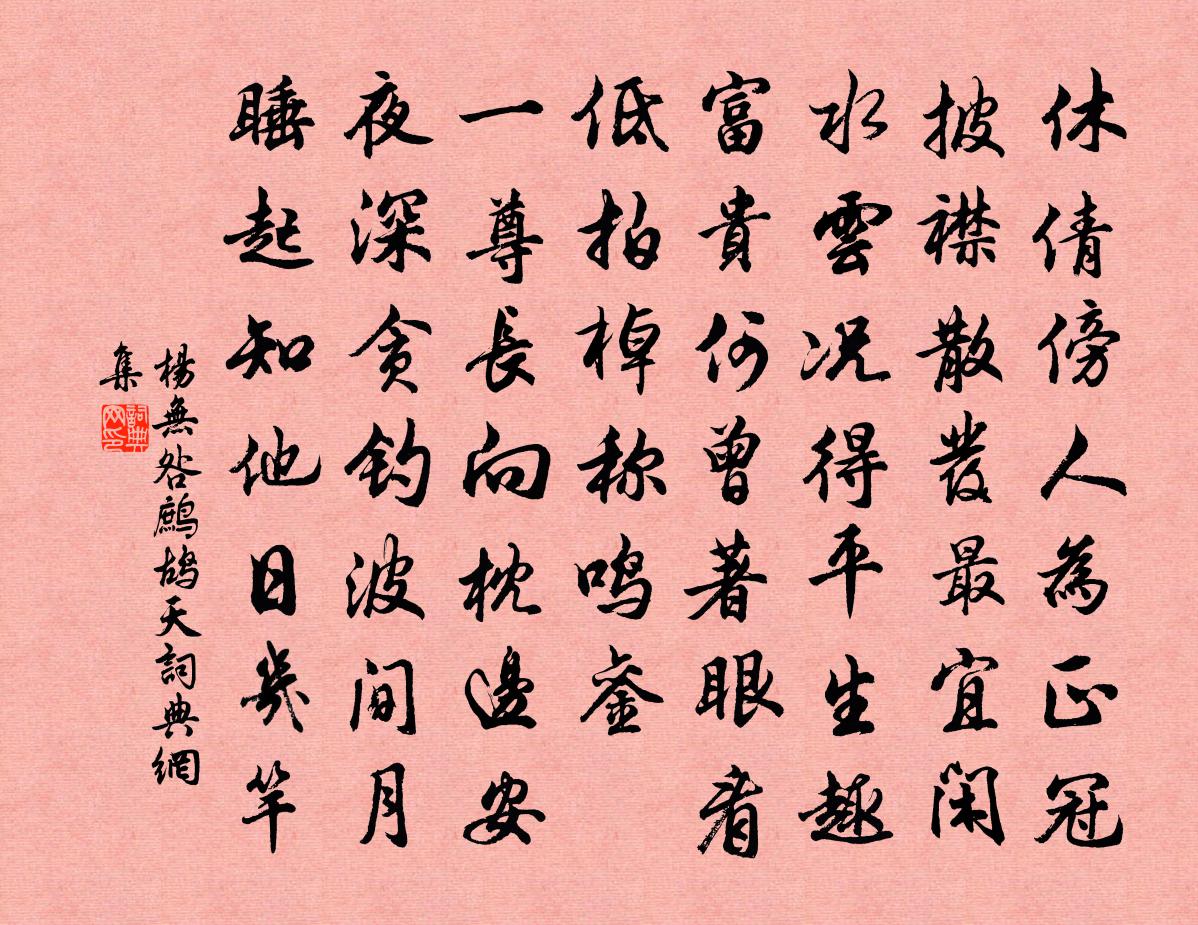 休倩傍人為正冠
披襟散發最宜閑
水雲況得平生趣
富貴何曾著眼看
低拍棹称鸣銮
一尊長向枕邊安
夜深贪钓波間月
睡起知他日幾竿
楊無咎鷓鴣天詞典網
集
詞典网印